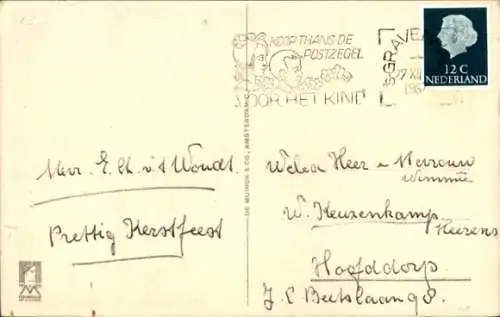 KOOP THANS DE
POSTZEGEL
VOOR HET KIND
'S GRAVEN
27 XII
196
12 C
NEDERLAND
Mevr. E. Ch. v.d. Woudt.
Prettig Kerstfeest
DE MUINCK & CO., AMSTERDAM-C.
Weled Heer en Mevrouw
W. Keuzenkamp
Heerens
Hoofddorp.
J. C. Beetslaan 98.